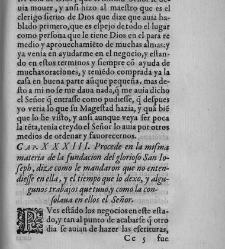 uia mouer, y ansi hizo al maestro que es el
clerigo sieruo de Dios que dixe que auia ha-
blado primero, que es espejo de todo el lugar
como persona que le tiene Dios en el para re
medio y aprouechamiẽto de muchas almas: y
ya venia en ayudarme en el negocio, y estan-
do en estos terminos y siempre cõ ayuda de
muchas oraciones, y teniẽdo comprada ya la
casa en buena parte aunque pequeña, mas de-
sto a mi no se me daua nada, q̃ me auia dicho
el Señor q̃ entrasse como pudiesse, q̃ despues
yo veria lo que su Magestad hazia, y quã biẽ
que lo he visto, y ansi aunque veya ser poca
la rẽta, tenia creydo el Señor lo auia por otros
medios de ordenar y fauorecernos.
CAP. XXXIII. Procede en la misma
materia de la fundacion del glorioso San Io-
seph, dize como le mandaron que no enten-
diesse en ella, y el tiempo que lo dexo, y algu-
gunos trabajos que tuuo, y como la con-
solaua en ellos el Señor.
PVes estãdo los negocios en este esta-
do, y tan al punto de acabarse q̃ otro
dia se auian de hazer las escrituras,
Cc 5 fue